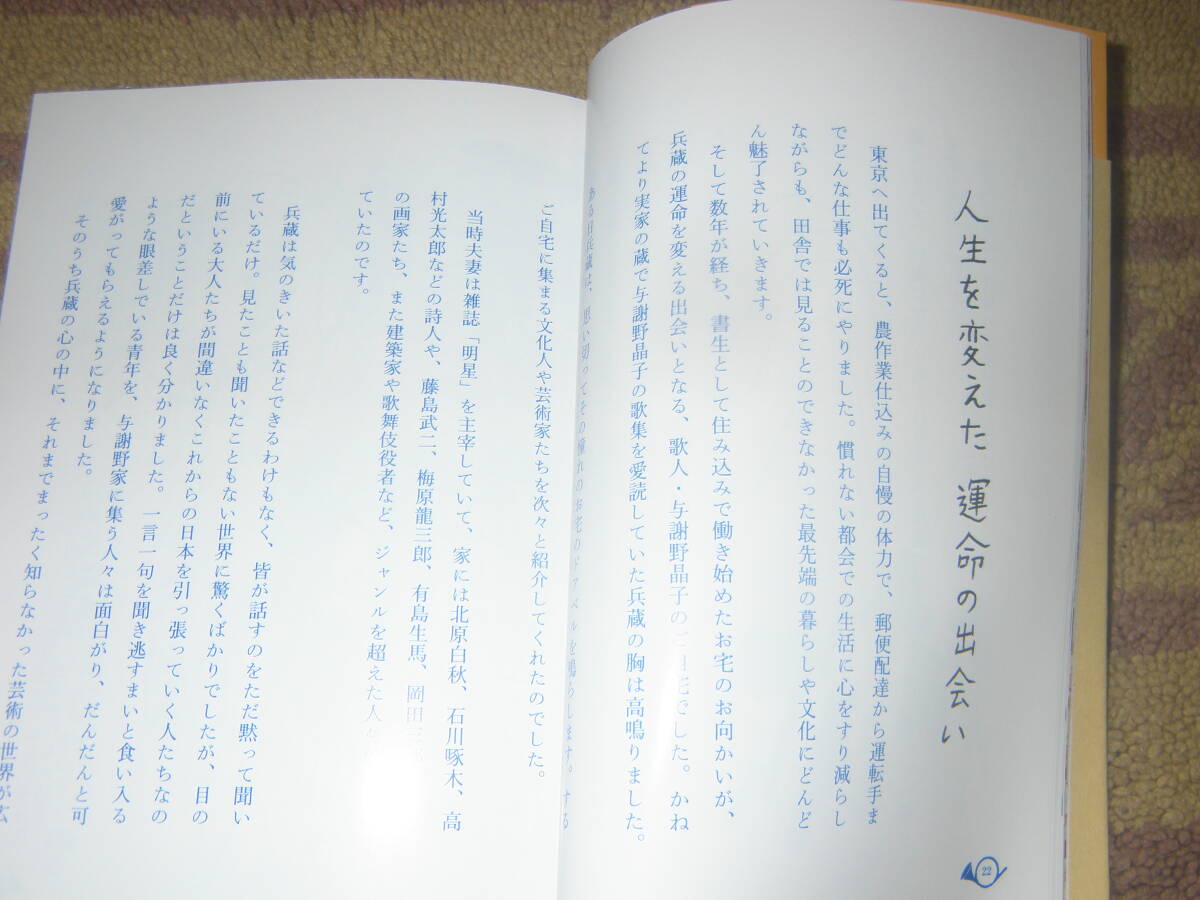 人生を変えた 運命の出会い
東京へ出てくると、農作業仕込みの自慢の体力で、郵便配達から運転手ま
でどんな仕事も必死にやりました。慣れない都会での生活に心をすり減らし
ながらも、田舎では見ることのできなかった最先端の暮らしや文化にどんど
ん魅了されていきます。
そして数年が経ち、書生として住み込みで働き始めたお宅のお向かいが、
兵蔵の運命を変える出会いとなる、歌人・与謝野晶子のご自宅でした。かね
てより実家の蔵で与謝野晶子の歌集を愛読していた兵蔵の胸は高鳴りました。
ある日兵蔵は、思い切ってその憧れのお宅のドアベルを鳴らします。する
22
ご自宅に集まる文化人や芸術家たちを次々と紹介してくれたのでした。
当時夫妻は雑誌「明星」を主宰していて、家には北原白秋、石川啄木、高
村光太郎などの詩人や、藤島武二、梅原龍三郎、有島生馬、岡田三
の画家たち、また建築家や歌舞伎役者など、ジャンルを超えた人
ていたのです。
兵蔵は気のきいた話などできるわけもなく、皆が話すのをただ黙って聞い
ているだけ。見たことも聞いたこともない世界に驚くばかりでしたが、目の
前にいる大人たちが間違いなくこれからの日本を引っ張っていく人たちなの
だということだけは良く分かりました。一言一句を聞き逃すまいと食い入る
ような眼差しでいる青年を、与謝野家に集う人々は面白がり、だんだんと可
愛がってもらえるようになりました。
そのうち兵蔵の心の中に、それまでまったく知らなかった芸術の世界が広